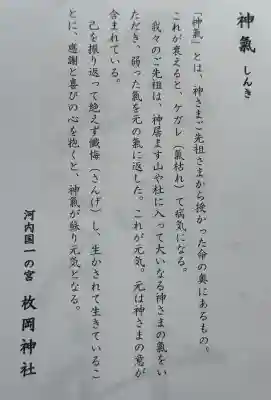 神氣 しんき
「神氣」とは、神さまご先祖さまから授かった命の奥にあるもの。
これが衰えると、ケガレ（氣枯れ）て病気になる。
我々のご先祖は、神居ます山や杜に入って大いなる神さまの氣をい
ただき、弱った氣を元の氣に返した。これが元気。元は神さまの意が
含まれている。
己を振り返って絶えず懺悔（さんげ）し、生かされて生きているこ
とに、感謝と喜びの心を抱くと、神氣が蘇り元気となる。
河内国一の宮 枚岡神社